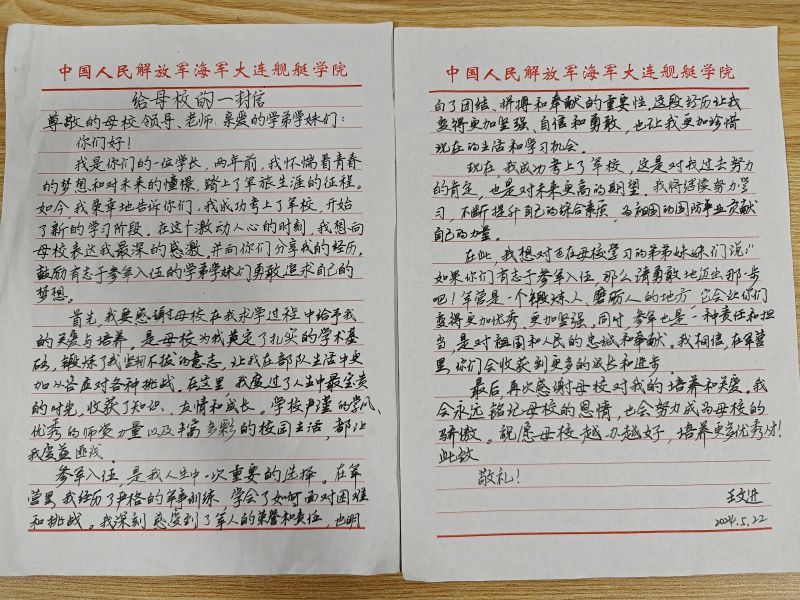 中国人民解放军海军大连舰艇学院
给母校的一封信
尊敬的母校领导、老师、亲爱的学弟学妹们：
你们好！
我是你们的一位学长，两年前，我怀惴着青春
的梦想和对未来的憧憬，踏上了军旅生涯的征程。
如今，我荣幸地告诉你们，我成功考上了军校，开始
了新的学习阶段。在这个激动人心的时刻，我想向
母校表达我最深的感激，并向你们分享我的经历，
鼓励有志于参军入伍的学弟学妹们勇敢追求自己的
梦想。
首先，我要感谢母校在我求学过程中给予我
的关爱与培养。是母校为我奠定了扎实的学术基
础，锻炼了我坚韧不拔的意志，让我在部队生活中更
加从容应对各种挑战。在这里，我度过了人生中最宝贵
的时光，收获了知识、友情和成长。学校严谨的学风、
优秀的师资力量以及丰富多彩的校园生活，都让
我受益匪浅。
参军入伍，是我人生中一次重要的选择。在军
营里，我经历了严格的军事训练，学会了如何面对困难
和挑战。我深刻感受到了军人的荣誉和责任，也明
中国人民解放军海军大连舰艇学院
白了团结、拼搏和奉献的重要性。这段经历让我
变得更加坚强、自信和勇敢，也让我更加珍惜
现在的生活和学习机会。
现在，我成功考上了军校，这是对我过去努力
的肯定，也是对未来更高的期望。我将继续努力学
习，不断提升自己的综合素质，为祖国的国防事业贡献
自己的力量。
在此，我想对正在母校学习的弟弟妹妹们说：
如果你们有志于参军入伍，那么请勇敢地迈出那一步
吧！军营是一个锻炼人、磨砺人的地方，它会让你们
变得更加优秀、更加坚强。同时，参军也是一种责任和担
当，是对祖国和人民的忠诚和奉献。我相信，在军营
里，你们会收获到更多的成长和进步。
最后，再次感谢母校对我的培养和关爱。我
会永远铭记母校的恩情，也会努力成为母校的
骄傲。祝愿母校越办越好，培养更多优秀人才！
此致
敬礼！
王文进
2024.5.22